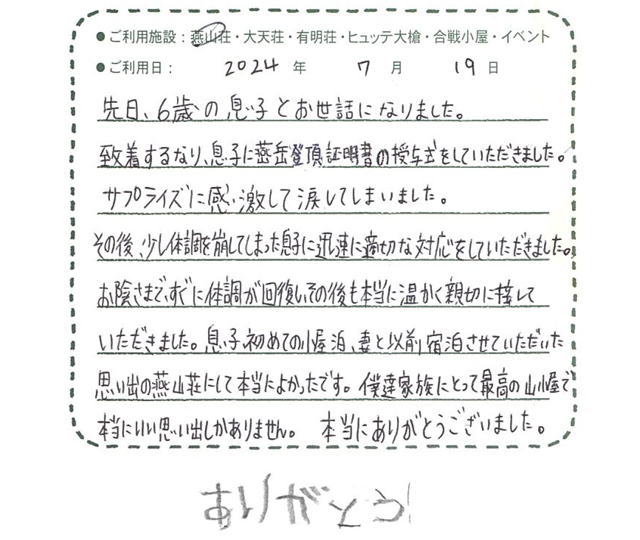 ●ご利用施設：燕山荘・大天荘・有明荘・ヒュッテ大槍・合戦小屋・イベント
●ご利用日： 2024 年 7 月 19 日
先日、6歳の息子とお世話になりました。
到着するなり、息子に燕岳登頂証明書の授与式をしていただきました。
サプライズに感激して涙してしまいました。
その後、少し体調を崩してしまった息子に迅速に適切な対応をしていただきました。
お陰さまで、すぐに体調が回復し、その後も本当に温かく親切に接して
いただきました。息子初めての小屋泊、妻と以前宿泊させていただいた
思い出の燕山荘にして本当によかったです。僕達家族にとって最高の山小屋で
本当にいい思い出しかありません。 本当にありがとうございました。
ありがとう!